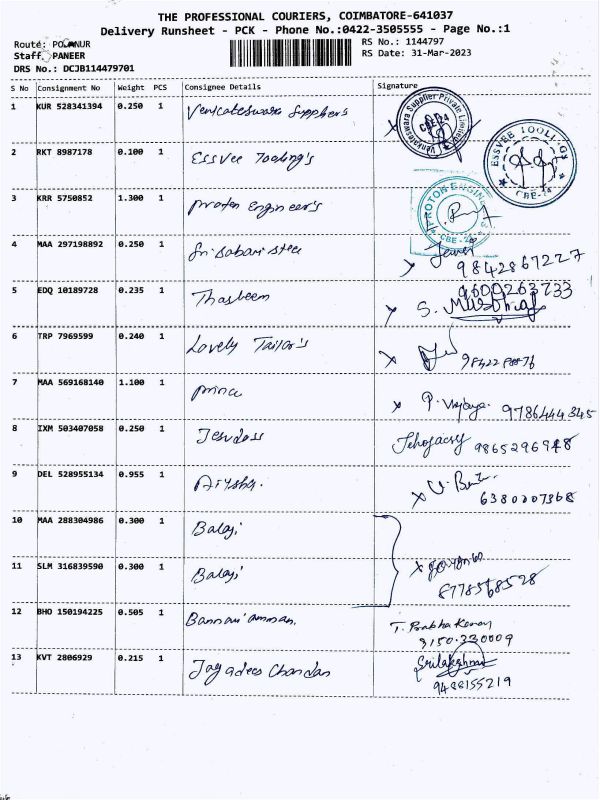 THE PROFESSIONAL COURIERS, COIMBATORE-641037
Delivery Runsheet - PCK - Phone No.:0422-3505555 - Page No.:1
Route: PODANUR
Staff: PANEER
DRS No.: DCJB114479701
RS No.: 1144797
RS Date: 31-Mar-2023
S No Consignment No Weight PCS Consignee Details Signature
1 KUR 528341394 0.250 1 Venkateswara Supplier's
Venkateswara Supplier Private Limited
CBE-24
2 RKT 8987178 0.100 1 EssVee Tooling's
ESSVEE TOOLINGS
CBE-24
3 KRR 5750852 1.300 1 Proton Engineer's
PROTON ENGINEERS
CBE-24
4 MAA 297198892 0.250 1 Sri Sabari Steel
9842867227
5 EDQ 10189728 0.235 1 Thasleem
9600263733
S.
6 TRP 7969599 0.240 1 Lovely Tailor's
7 MAA 569168140 1.100 1 Prince
P. Vijaya. 9786444345
8 IXM 503407058 0.250 1 Jesudoss
9865296948
9 DEL 528955134 0.955 1 Aiysha.
6380007368
10 MAA 288304986 0.300 1 Balaji
11 SLM 316839590 0.300 1 Balaji
8778568528
12 BHO 150194225 0.505 1 Bannari amman.
T. Prabhakaran
9150330009
13 KVT 2806929 0.215 1 Jagadees Chandan
Srilakshmi
9488155219